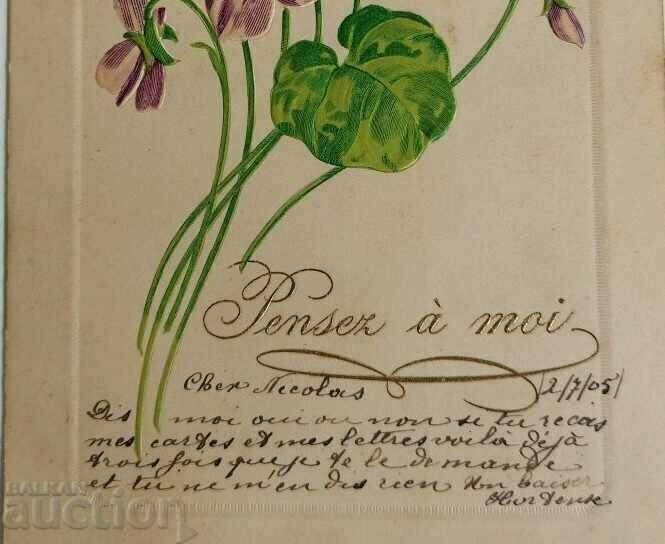 Pensez à moi
Cher Nicolas 12/7/05
Dis moi oui ou non si tu recois
mes cartes et mes lettres voilà dejà
trois fois que je te le demande
et tu ne m'en dis rien Un baiser
Hortense
BALKAN
auction